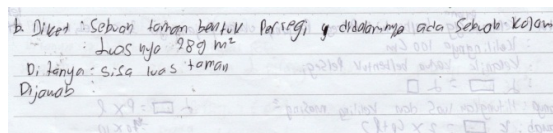 b. Diket : Sebuah taman bentuk Persegi, y didalamnya ada Sebuah Kolam
Luasnya 289 m²
Ditanya : Sisa luas taman
Dijawab :